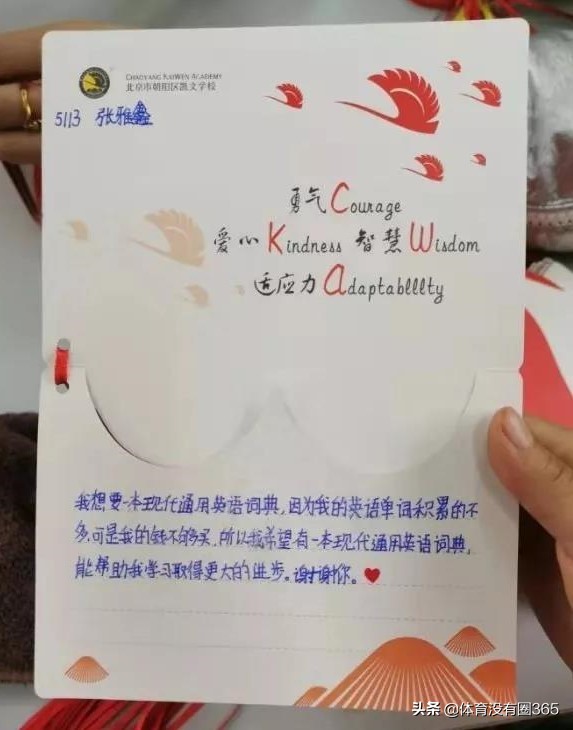 CHAOYANG KAIWEN ACADEMY
北京市朝阳区凯文学校
5113 张雅鑫
勇气 Courage
爱心 Kindness 智慧 Wisdom
适应力 Adaptabllity
我想要一本现代通用英语词典,因为我的英语单词积累的不
多,可是我的钱不够买,所以我希望有一本现代通用英语词典,
能帮助我学习取得更大的进步。谢谢你。
头条 @体育没有圈365